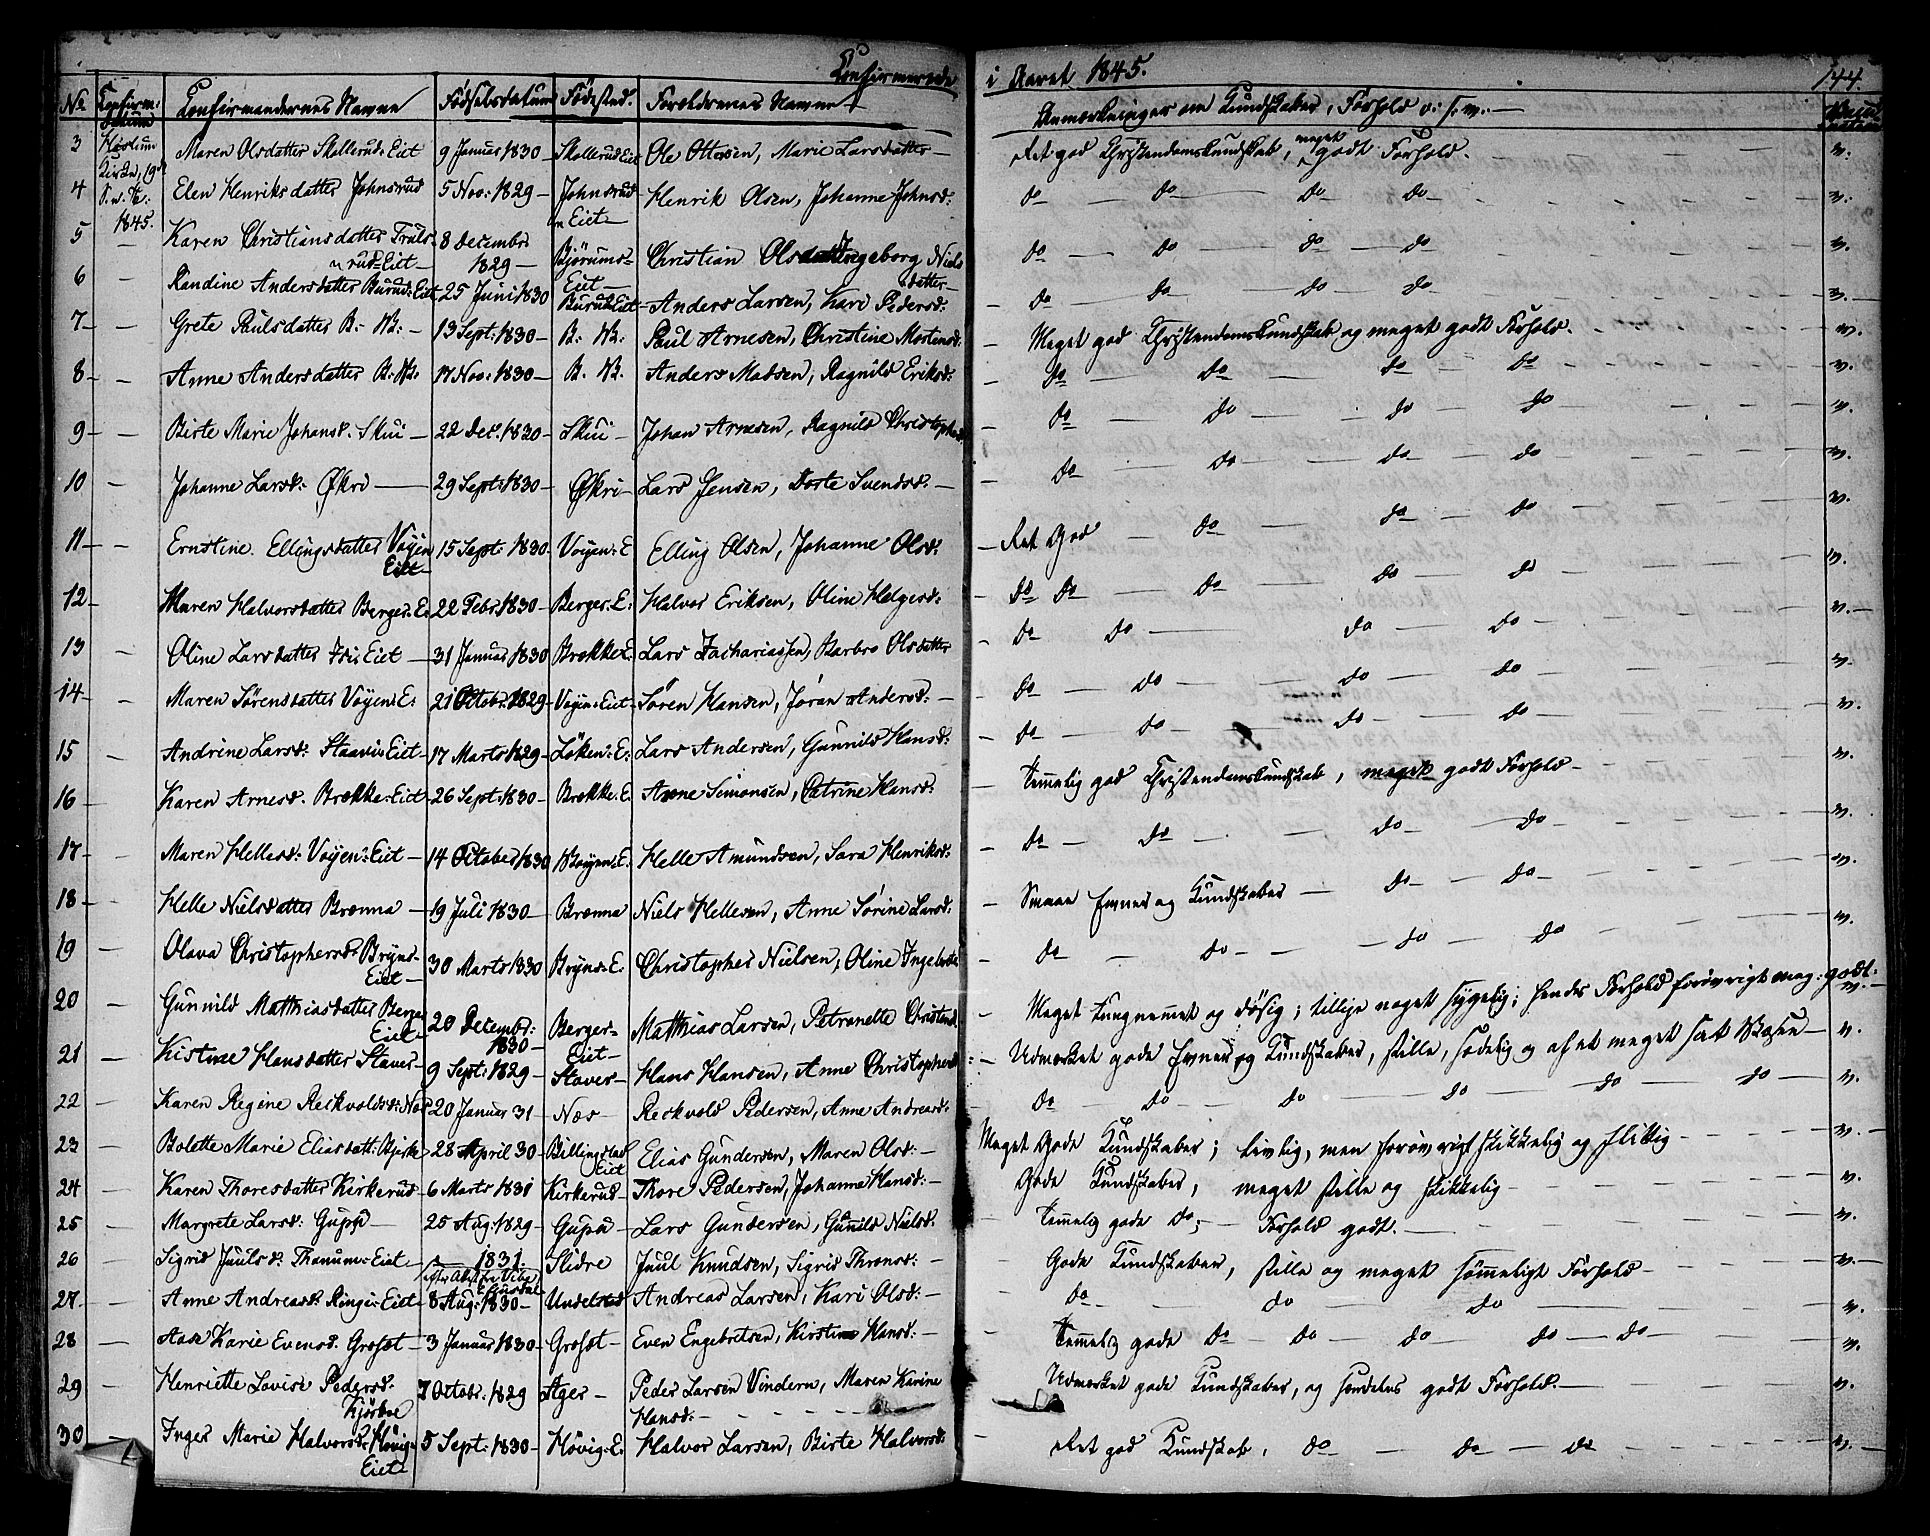 Confirmerede i Aaret 1845. 144.
No Confirm: Datum Confirmandernes Navne Fødselsdatum Fødested. Forældrenes Navne Anmærkninger om Kundskaber, Forhold o: s: v: —
3 Haslum Kirke, 19de S. n. Tr. 1845. Maren Olsdatter Skollerud: Eiet 9 Januar 1830 — Skollerud Eiet Ole Ottersen, Marie Larsdatter — Ret god Christendomskundskab, meget godt Forhold. v:
4 Elen Henriksdatter Johnsrud 5 Nov: 1829 — Johnsrud Eiet — Henrik Olsen, Johanne Johnsd: do — do — do — do v:
5 — Karen Christiansdatter Trulsrud-Eiet — 8 Decembr 1829 — Bjørums-Eiet — Christian Olsen Ingeborg Nielsdatter — do — do — do — do v.
6 — Randine Andersdatter Burud: Eiet 25 Juni 1830 Burud: Eiet — Anders Larsen, Kari Pedersd: — do do — do — do v. —
7 — — Grete Paulsdatter B: — 13 Sept: 1830 — B. Paul Arnesen, Christine Mortensd: — Meget god Christendomskundskab og meget godt Forhold. v.
8 — — Anne Andersdatter B: 17 Nov: 1830 — B. Anders Madsen, Ragnild Eriksd: — do — do — do — do v.
9 — — Birte Marie Johansd. Skui — 22 Dec. 1830 — Skui — Johan Arnesen, Ragnild Christophersd — do — do — do do v.
10 — Johanne Larsd: Økri — 29 Sept: 1830 — Økri — Lars Jensen, Dorte Svendsd: — — do — do — do — do v.
11 — — Ernstine Ellingsdatter Vøyen Eiet — 15 Sept: 1830 — Vøyen: E Elling Olsen, Johanne Olsd: — Ret God do do — do v.
12 — Maren Halvorsdatter Berger: E: 22 Febr: 1830 — Berger: E: Halvor Eriksen, Oline Helgesd: — do do — do — do — do v. —
13 — Oline Larsdatter Eiet — 31 Januar 1830 Brække E. Lars Zachariassen, Barbro Olsdatter — do do — do — do v.
14 — — Maren Sørensdatter Vøyen: E: 21 Octobr: 1829 — Vøyen: Eiet — Søren Hansen, Jøran Andersd: — — do — do — do — do v.
15 — Andrine Larsd: Staavi: Eiet — 17 Marts 1829 — Løken: E: Lars Andersen, Gunnild Hansd: — do — do — do — do — v.
16 — Karen Arnesd. Brække: Eiet 26 Sept: 1830 — Brække: E. Arne Simonsen, Catrine Hansd: — Temmelig god Christendomskundskab, meget godt Forhold — v.
17 — — Maren Hellesd: Vøyen: Eiet — 14 October 1830 Vøyen: E: Helle Amundsen, Sara Henriksd: — do — do — do — do — v.
18 — — Helle Nielsdatter Brenna — 19 Juli 1830 — Brenna Niels Hellesen, Anne Sørine Larsd: — Smaae Evner og Kundskaber — do — do — v.
19 — Olava Christophersd: Bryns-Eiet — 30 Marts 1830 Bryns: E: Christopher Nielsen, Oline Ingebrets — do — do — — do — do v.
20 — Gunnild Matthiasdatter Berger Eiet — 20 Decembr: 1830 — Berger-Eiet — Matthias Larsen, Petronelle Christensd — Meget tungnemmet og døsig; tillige noget sygelig; hendes Forhold forøvrigt meg: godt: v. —
21 — Kistine Hansdatter Staver — 9 Sept: 1829 — Staver — Hans Hansen, Anne Christophersd — Udmærket gode Evner og Kundskaber, stille, sædelig og af et meget sat Væsen — v.
22 — Karen Regine Reckvoldsd: Næs 20 Januar 31 — Næs — Reckvold Pedersen, Anne Andreasd: — do do — do — do — do — do — v.
23 — Bolette Marie Eliasdatt: Bjerke 28 April 30 — Billingstad Eiet Elias Gundersen, Maren Olsd: — Meget Gode Kundskaber; livlig, men forøvrigt skikkelig og flittig — v. —
24 — Karen Thoresdatter Kirkerud — 6 Marts 1831 Kirkerud — Thore Pedersen, Johanne Hansd: — Gode Kundskaber, meget stille og skikkelig — v.
25 — Margrete Larsd: Gupu — 25 Aug: 1829 — Gupu — Lars Gundersen, Gunild Nielsd. — Temmelig gode do; — Forhold godt. — v.
26 — Sigrid Juulsd: Thanum: Eiet — 1831. Slidre Juul Knudsen, Sigrid Thronsd: — Gode Kundskaber, stille og meget sømmeligt Forhold — v.
27 — Anne Andreasd: Ringi: Eiet — 8 Aug: 1830 — Undelstad Andreas Larsen, Kari Olsd: — do — do — do v.
28 — Aase Karie Evensd. Grosæt — 3 Januar 1830 — Grosæt — Even Engebretsen, Kirstine Hansd: — — Temmelig gode do — do — do — do — do — v.
29 — Henriette Lovise Pedersd. Kjørboe 7 Octobr: 1829 Ager — Peder Larsen Vindern, Maren Karine Hansd: — Udmærket gode Kundskaber, og særdeles godt Forhold. — v.
30 — Inger Marie Halvorsd: Høvig: Eiet — 5 Sept: 1830 — Høvig: E. Halvor Larsen, Birte Halvorsd: Ret god Kundskab, do — do — do v. —